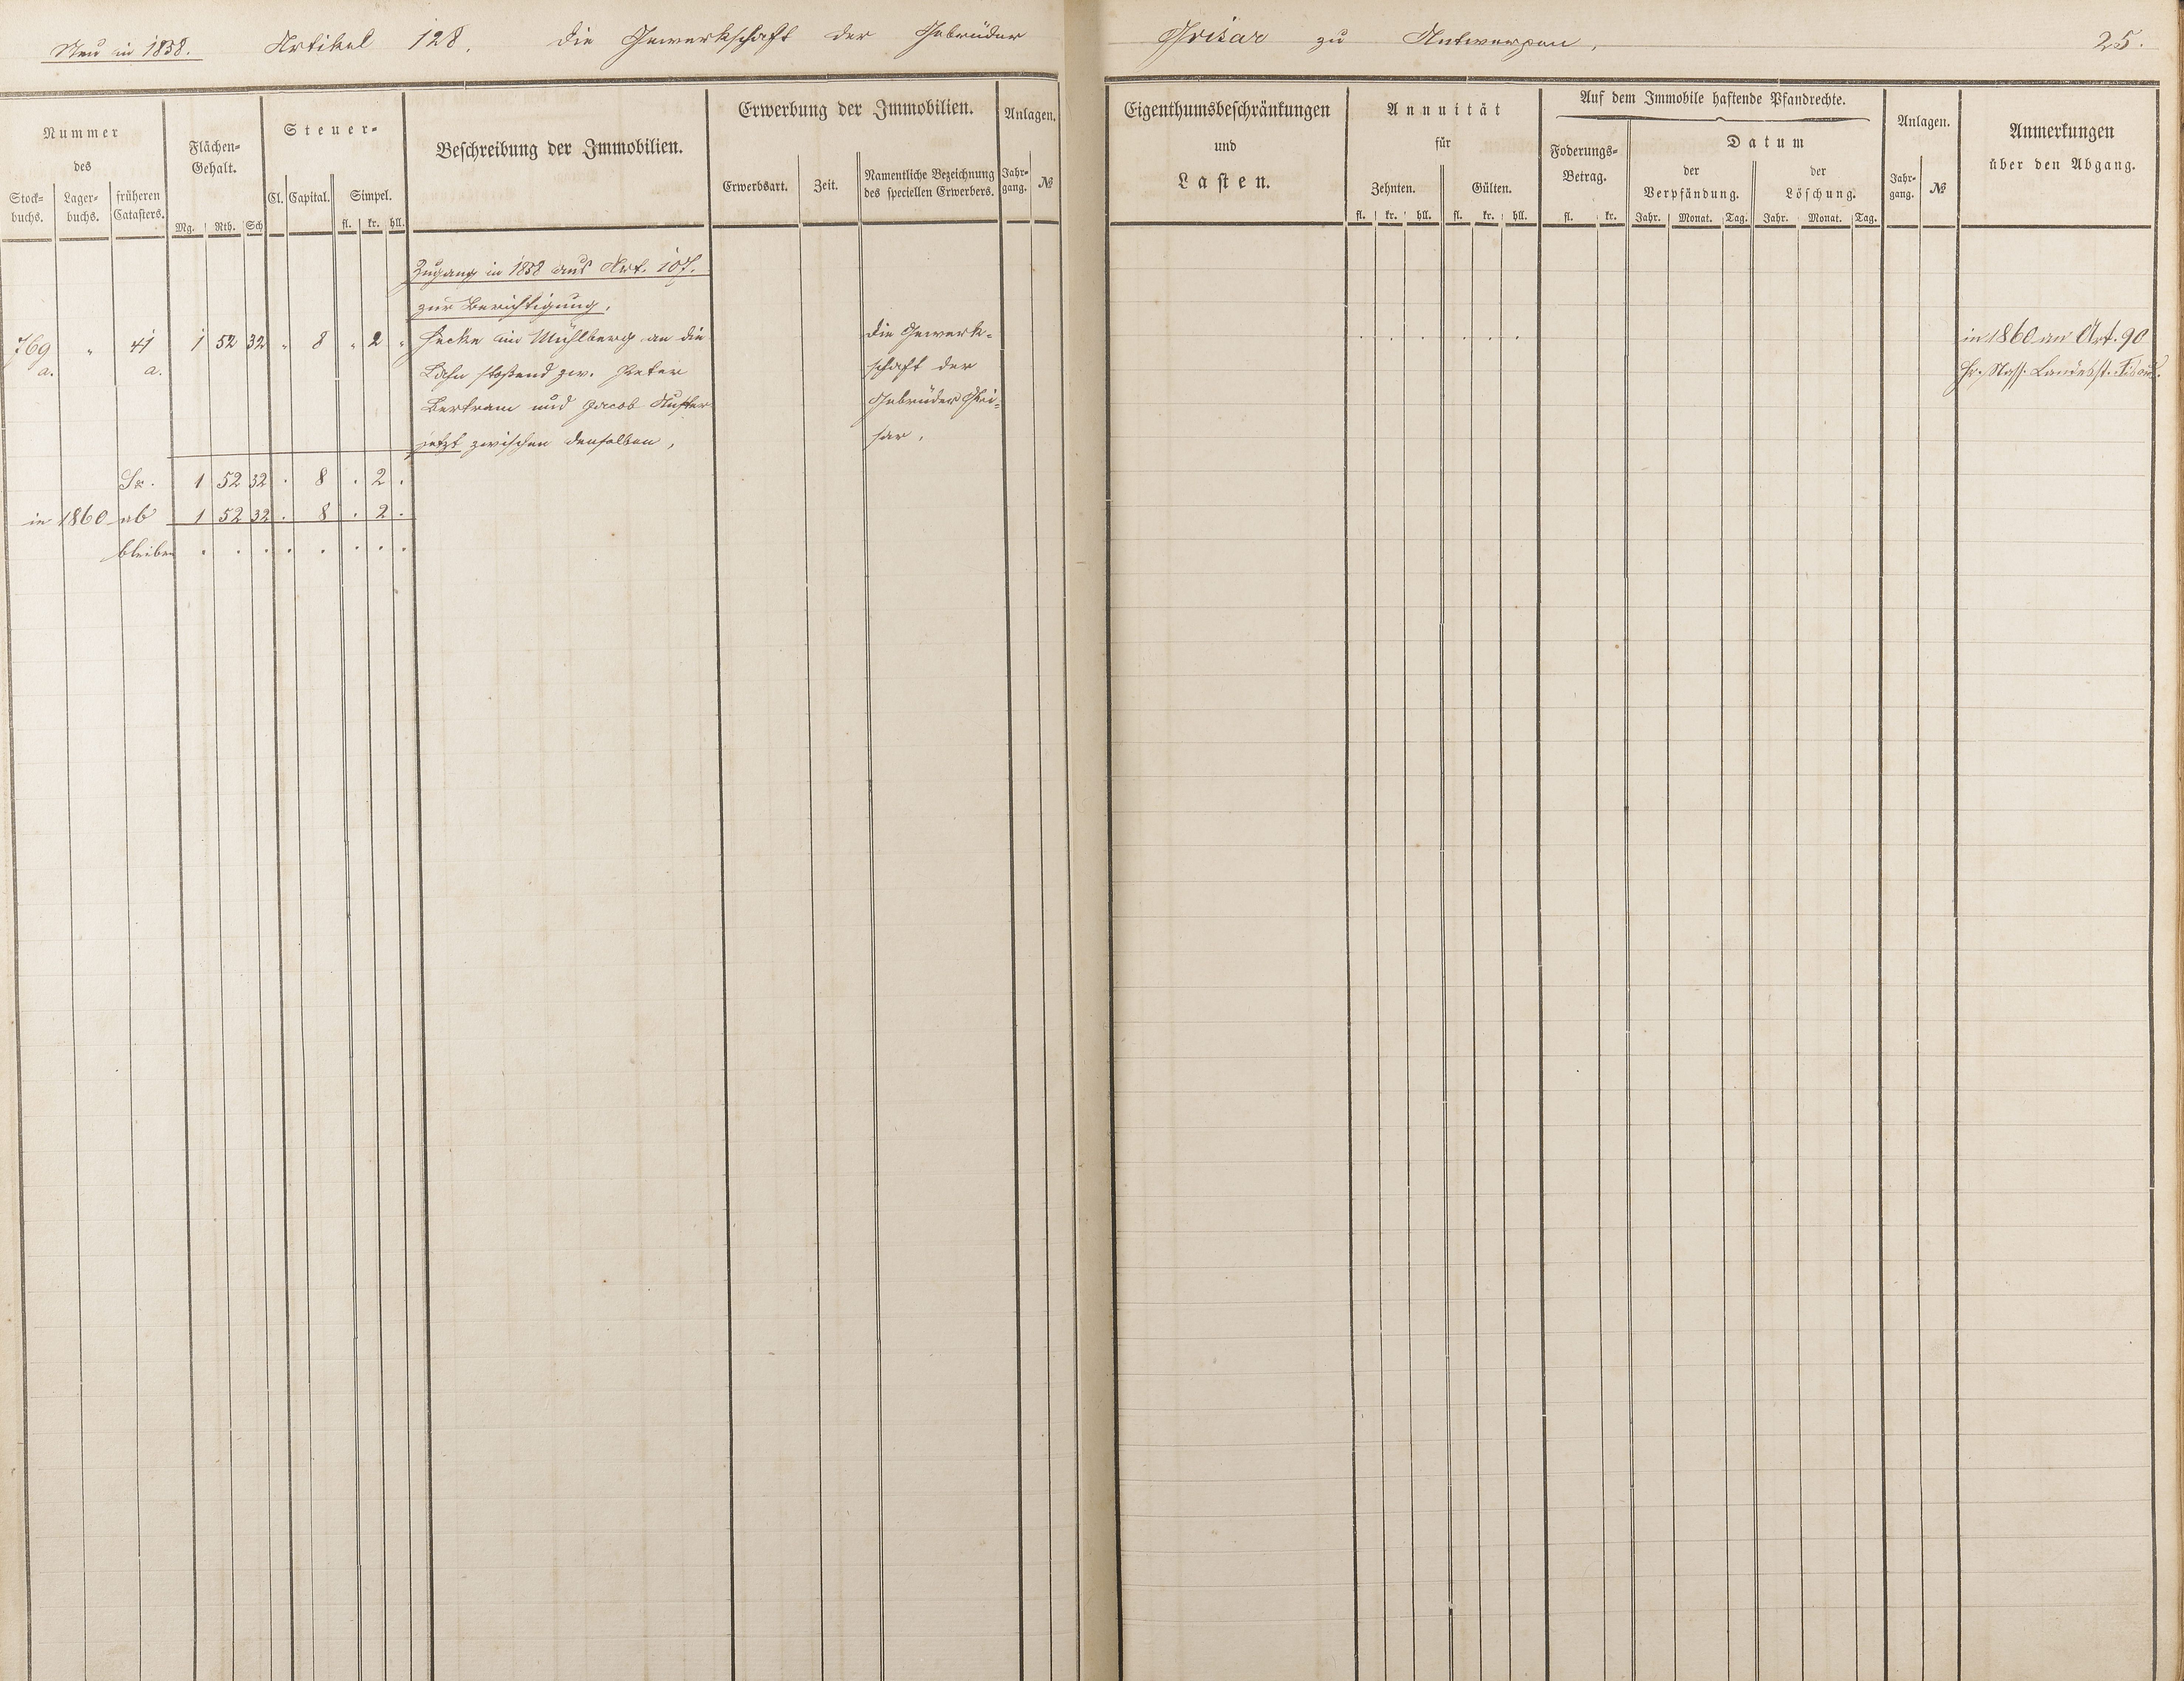 Neu in 1858. Artikel 128. Die Gewerkschaft der Gebrüder Grisar zu Antwerpen, 25.
Nummer
des
Stock-
buchs.
Lager-
buchs.
früheren
Catasters.
Flächen-
Gehalt.
Mg. Rth. Sch
Steuer-
Cl. Capital. Simpel.
fl. kr. hll.
Beschreibung der Immobilien.
Erwerbung der Immobilien.
Erwerbsart. Zeit.
Namentliche Bezeichnung
des speciellen Erwerbers.
Anlagen.
Jahr-
gang. №
Eigenthumsbeschränkungen
und
Lasten.
Annuität
für
Zehnten. Gülten.
fl. kr. hll. fl. kr. hll.
Auf dem Immobile haftende Pfandrechte.
Foderungs-
Betrag.
fl. kr.
Datum
der
Verpfändung.
der
Löschung.
Jahr. Monat. Tag. Jahr. Monat. Tag.
Anlagen.
Jahr-
gang. №
Anmerkungen
über den Abgang.
Zugang in 1858 aus Art. 107.
zur Berichtigung.
769 " 41 1 52 32 " 8 " 2 " Hecke im Mühlberg an die Die Gewerk- . . . . . . in 1860 an Art. 90
a. a. Lahn stoßend zw. Peter schaft der Hz. Nass. Landesst. Fiscus.
Bertram und Jacob Gebrüder Gri-
jetzt zwischen denselben, sar.
Sa. 1 52 32 . 8 . 2 .
in 1860 ab 1 52 32 . 8 . 2 .
bleiben . . . . . . . .